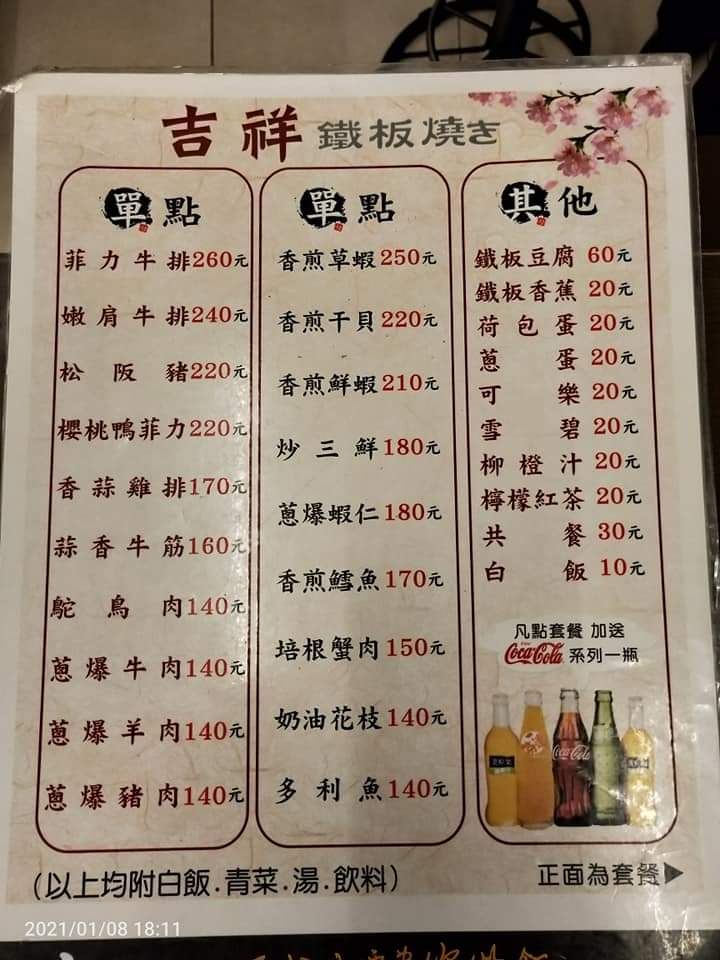 吉祥 鐵板燒き
單點
菲力牛排260元
嫩肩牛排240元
松阪豬220元
櫻桃鴨菲力220元
香蒜雞排170元
蒜香牛筋160元
鴕鳥肉140元
蔥爆牛肉140元
蔥爆羊肉140元
蔥爆豬肉140元
單點
香煎草蝦250元
香煎干貝220元
香煎鮮蝦210元
炒三鮮180元
蔥爆蝦仁180元
香煎鱈魚170元
培根蟹肉150元
奶油花枝140元
多利魚140元
其他
鐵板豆腐 60元
鐵板香蕉 20元
荷包蛋 20元
蔥蛋 20元
可樂 20元
雪碧 20元
柳橙汁 20元
檸檬紅茶 20元
共餐 30元
白飯 10元
凡點套餐 加送
Coca-Cola 系列一瓶
Coca-Cola
(以上均附白飯.青菜.湯.飲料)
正面為套餐▶
2021/01/08 18:11